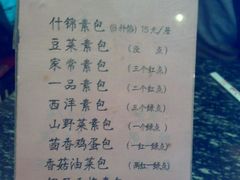 什锦素包（自制馅）15元/屉
豆菜素包（没点）
家常素包（三个红点）
一品素包（二个红点）
西洋素包（三个绿点）
山野菜素包（一个绿点）
茴香鸡蛋包（一红一绿点）
香菇油菜包（两红一绿点）